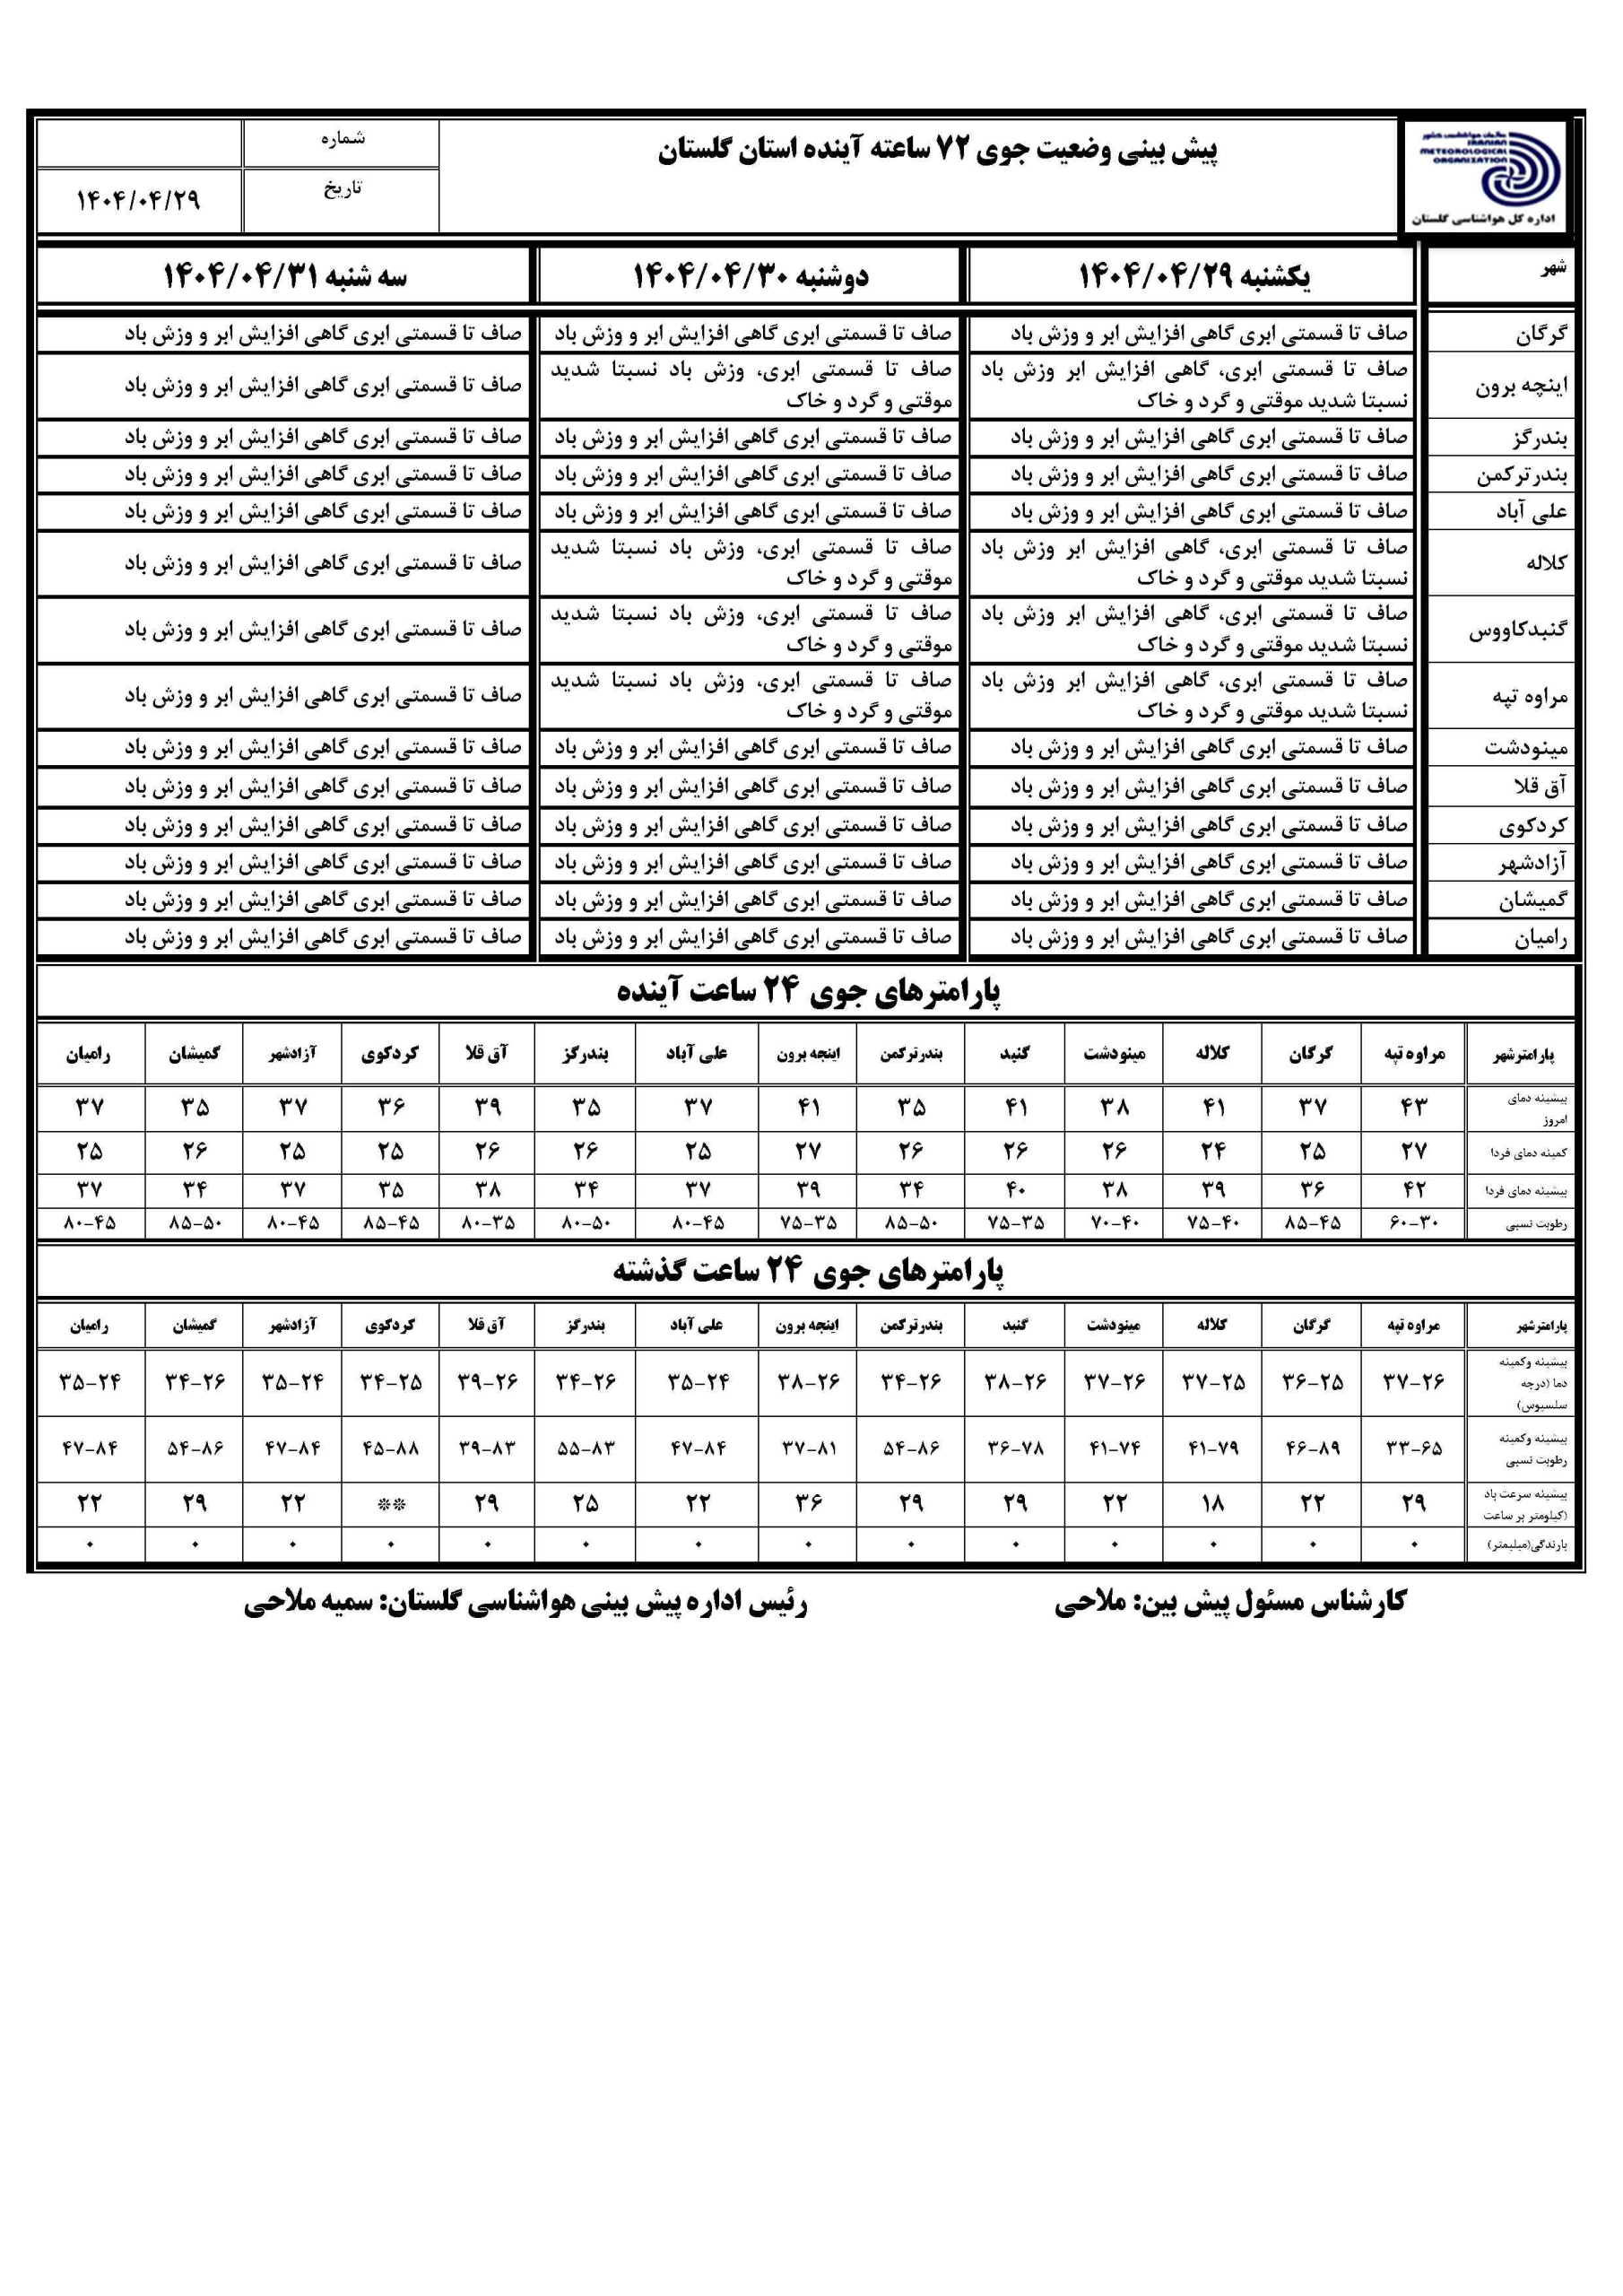 سازمان هواشناسی کشور
IRANIAN
METEOROLOGICAL
ORGANIZATION
اداره کل هواشناسی گلستان
پیش بینی وضعیت جوی ۷۲ ساعته آینده استان گلستان
شماره
تاریخ ۱۴۰۴/۰۴/۲۹
شهر یکشنبه ۱۴۰۴/۰۴/۲۹ دوشنبه ۱۴۰۴/۰۴/۳۰ سه شنبه ۱۴۰۴/۰۴/۳۱
گرگان صاف تا قسمتی ابری گاهی افزایش ابر و وزش باد صاف تا قسمتی ابری گاهی افزایش ابر و وزش باد صاف تا قسمتی ابری گاهی افزایش ابر و وزش باد
اینچه برون صاف تا قسمتی ابری، گاهی افزایش ابر وزش باد نسبتا شدید موقتی و گرد و خاک صاف تا قسمتی ابری، وزش باد نسبتا شدید موقتی و گرد و خاک صاف تا قسمتی ابری گاهی افزایش ابر و وزش باد
بندرگز صاف تا قسمتی ابری گاهی افزایش ابر و وزش باد صاف تا قسمتی ابری گاهی افزایش ابر و وزش باد صاف تا قسمتی ابری گاهی افزایش ابر و وزش باد
بندرترکمن صاف تا قسمتی ابری گاهی افزایش ابر و وزش باد صاف تا قسمتی ابری گاهی افزایش ابر و وزش باد صاف تا قسمتی ابری گاهی افزایش ابر و وزش باد
علی آباد صاف تا قسمتی ابری گاهی افزایش ابر و وزش باد صاف تا قسمتی ابری گاهی افزایش ابر و وزش باد صاف تا قسمتی ابری گاهی افزایش ابر و وزش باد
کلاله صاف تا قسمتی ابری، گاهی افزایش ابر وزش باد نسبتا شدید موقتی و گرد و خاک صاف تا قسمتی ابری، وزش باد نسبتا شدید موقتی و گرد و خاک صاف تا قسمتی ابری گاهی افزایش ابر و وزش باد
گنبدکاووس صاف تا قسمتی ابری، گاهی افزایش ابر وزش باد نسبتا شدید موقتی و گرد و خاک صاف تا قسمتی ابری، وزش باد نسبتا شدید موقتی و گرد و خاک صاف تا قسمتی ابری گاهی افزایش ابر و وزش باد
مراوه تپه صاف تا قسمتی ابری، گاهی افزایش ابر وزش باد نسبتا شدید موقتی و گرد و خاک صاف تا قسمتی ابری، وزش باد نسبتا شدید موقتی و گرد و خاک صاف تا قسمتی ابری گاهی افزایش ابر و وزش باد
مینودشت صاف تا قسمتی ابری گاهی افزایش ابر و وزش باد صاف تا قسمتی ابری گاهی افزایش ابر و وزش باد صاف تا قسمتی ابری گاهی افزایش ابر و وزش باد
آق قلا صاف تا قسمتی ابری گاهی افزایش ابر و وزش باد صاف تا قسمتی ابری گاهی افزایش ابر و وزش باد صاف تا قسمتی ابری گاهی افزایش ابر و وزش باد
کردکوی صاف تا قسمتی ابری گاهی افزایش ابر و وزش باد صاف تا قسمتی ابری گاهی افزایش ابر و وزش باد صاف تا قسمتی ابری گاهی افزایش ابر و وزش باد
آزادشهر صاف تا قسمتی ابری گاهی افزایش ابر و وزش باد صاف تا قسمتی ابری گاهی افزایش ابر و وزش باد صاف تا قسمتی ابری گاهی افزایش ابر و وزش باد
گمیشان صاف تا قسمتی ابری گاهی افزایش ابر و وزش باد صاف تا قسمتی ابری گاهی افزایش ابر و وزش باد صاف تا قسمتی ابری گاهی افزایش ابر و وزش باد
رامیان صاف تا قسمتی ابری گاهی افزایش ابر و وزش باد صاف تا قسمتی ابری گاهی افزایش ابر و وزش باد صاف تا قسمتی ابری گاهی افزایش ابر و وزش باد
پارامترهای جوی ۲۴ ساعت آینده
پارامترشهر مراوه تپه گرگان کلاله مینودشت گنبد بندرترکمن اینجه برون علی آباد بندرگز آق قلا کردکوی آزادشهر گمیشان رامیان
بیشینه دمای امروز ۴۳ ۳۷ ۴۱ ۳۸ ۴۱ ۳۵ ۴۱ ۳۷ ۳۵ ۳۹ ۳۶ ۳۷ ۳۵ ۳۷
کمینه دمای فردا ۲۷ ۲۵ ۲۴ ۲۶ ۲۶ ۲۶ ۲۷ ۲۵ ۲۶ ۲۶ ۲۵ ۲۵ ۲۶ ۲۵
بیشینه دمای فردا ۴۲ ۳۶ ۳۹ ۳۸ ۴۰ ۳۴ ۳۹ ۳۷ ۳۴ ۳۸ ۳۵ ۳۷ ۳۴ ۳۷
رطوبت نسبی ۶۰-۳۰ ۸۵-۴۵ ۷۵-۴۰ ۷۰-۴۰ ۷۵-۳۵ ۸۵-۵۰ ۷۵-۳۵ ۸۰-۴۵ ۸۰-۵۰ ۸۰-۳۵ ۸۵-۴۵ ۸۰-۴۵ ۸۵-۵۰ ۸۰-۴۵
پارامترهای جوی ۲۴ ساعت گذشته
پارامترشهر مراوه تپه گرگان کلاله مینودشت گنبد بندرترکمن اینجه برون علی آباد بندرگز آق قلا کردکوی آزادشهر گمیشان رامیان
بیشینه وکمینه دما (درجه سلسیوس) ۳۷-۲۶ ۳۶-۲۵ ۳۷-۲۵ ۳۷-۲۶ ۳۸-۲۶ ۳۴-۲۶ ۳۸-۲۶ ۳۵-۲۴ ۳۴-۲۶ ۳۹-۲۶ ۳۴-۲۵ ۳۵-۲۴ ۳۴-۲۶ ۳۵-۲۴
بیشینه وکمینه رطوبت نسبی ۳۳-۶۵ ۴۶-۸۹ ۴۱-۷۹ ۴۱-۷۴ ۳۶-۷۸ ۵۴-۸۶ ۳۷-۸۱ ۴۷-۸۴ ۵۵-۸۳ ۳۹-۸۳ ۴۵-۸۸ ۴۷-۸۴ ۵۴-۸۶ ۴۷-۸۴
بیشینه سرعت باد (کیلومتر بر ساعت ۲۹ ۲۲ ۱۸ ۲۲ ۲۹ ۲۹ ۳۶ ۲۲ ۲۵ ۲۹ ** ۲۲ ۲۹ ۲۲
بارندگی(میلیمتر) ۰ ۰ ۰ ۰ ۰ ۰ ۰ ۰ ۰ ۰ ۰ ۰ ۰ ۰
کارشناس مسئول پیش بین: ملاحی رئیس اداره پیش بینی هواشناسی گلستان: سمیه ملاحی